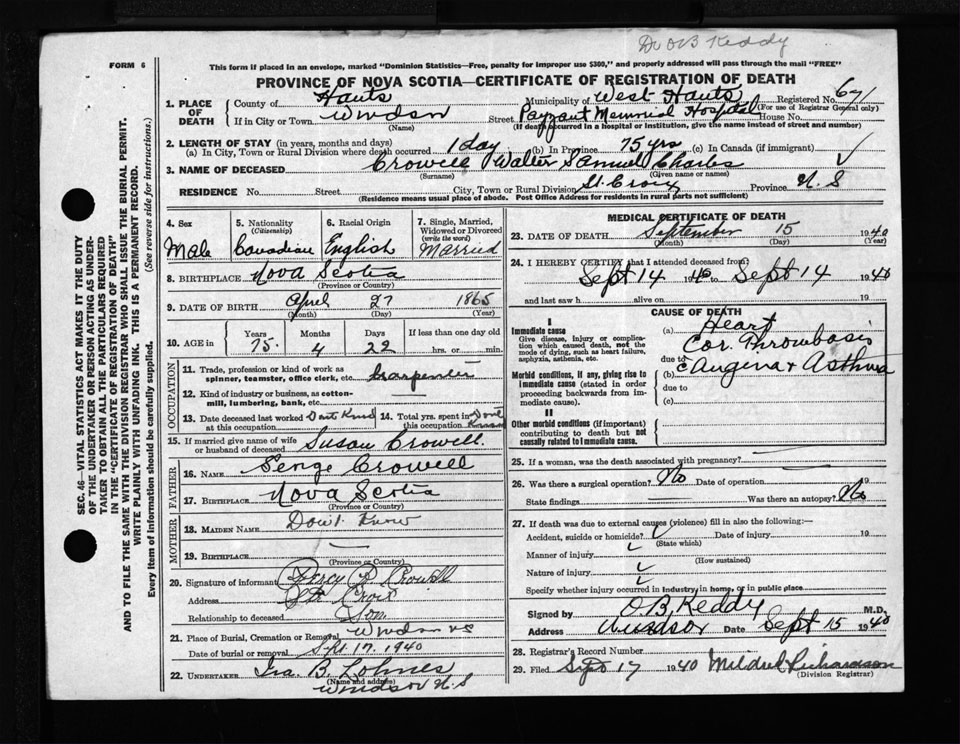 Dr OB Keddy
FORM 6
This form if placed in an envelope, marked "Dominion Statistics—Free, penalty for improper use $300," and properly addressed will pass through the mail "FREE"
PROVINCE OF NOVA SCOTIA—CERTIFICATE OF REGISTRATION OF DEATH
SEC. 46—VITAL STATISTICS ACT MAKES IT THE DUTY
OF THE UNDERTAKER OR PERSON ACTING AS UNDER-
TAKER TO OBTAIN ALL THE PARTICULARS REQUIRED
IN THE "CERTIFICATE OF REGISTRATION OF DEATH"
AND TO FILE THE SAME WITH THE DIVISION REGISTRAR WHO SHALL ISSUE THE BURIAL PERMIT.
WRITE PLAINLY WITH UNFADING INK. THIS IS A PERMANENT RECORD.
Every item of information should be carefully supplied. (See reverse side for instructions.)
1. PLACE OF DEATH County of Hants Municipality of West Hants Registered No. 671
(For use of Registrar General only)
If in City or Town Windsor Street Payzant Memorial Hospital House No.
(Name) (If death occurred in a hospital or institution, give the name instead of street and number)
2. LENGTH OF STAY (in years, months and days)
(a) In City, Town or Rural Division where death occurred 1 day (b) In Province 75 yrs (c) In Canada (if immigrant)
3. NAME OF DECEASED Crowell Walter Samuel Charles
(Surname) (Given name or names)
RESIDENCE No. Street City, Town or Rural Division St. Croix Province N.S
(Residence means usual place of abode. Post Office Address for residents in rural parts not sufficient)
4. Sex Male
5. Nationality (Citizenship) Canadian
6. Racial Origin English
7. Single, Married, Widowed or Divorced (write the word) Married
8. BIRTHPLACE Nova Scotia
(Province or Country)
9. DATE OF BIRTH April 27 1865
(Month) (Day) (Year)
10. AGE in Years Months Days If less than one day old
75 4 22 hrs. or min.
OCCUPATION
11. Trade, profession or kind of work as spinner, teamster, office clerk, etc. Carpenter
12. Kind of industry or business, as cotton-mill, lumbering, bank, etc.
13. Date deceased last worked at this occupation Dont Know
14. Total yrs. spent in this occupation Dont Know
15. If married give name of wife or husband of deceased Susan Crowell
FATHER
16. Name Senge Crowell
17. Birthplace Nova Scotia
(Province or Country)
MOTHER
18. Maiden Name Don't Know
19. Birthplace
(Province or Country)
20. Signature of informant Percy Crowell
Address St. Croix
Relationship to deceased Son
21. Place of Burial, Cremation or Removal Windsor NS
Date of burial or removal Spt 17, 1940
22. UNDERTAKER Ira B. Lohnes
(Name and address)
Windsor N.S
MEDICAL CERTIFICATE OF DEATH
23. DATE OF DEATH September 15 1940
(Month) (Day) (Year)
24. I HEREBY CERTIFY that I attended deceased from:
Sept 14 1940 to Sept 14 1940
and last saw h alive on 19
CAUSE OF DEATH
I
Immediate cause
Give disease, injury or complication which caused death, not the mode of dying, such as heart failure, asphyxia, asthenia, etc.
(a) Heart
Cor. Thrombosis
due to
Morbid conditions, if any, giving rise to immediate cause (stated in order proceeding backwards from immediate cause).
(b) c Angina & Asthma
due to
(c)
II
Other morbid conditions (if important) contributing to death but not causally related to immediate cause.
25. If a woman, was the death associated with pregnancy?
26. Was there a surgical operation? No Date of operation 19
State findings Was there an autopsy? No
27. If death was due to external causes (violence) fill in also the following:—
Accident, suicide or homicide? Date of injury 19
(State which)
Manner of injury
(How sustained)
Nature of injury
Specify whether injury occurred in industry, in home, or in public place
Signed by O.B. Keddy M.D.
Address Windsor Date Sept 15 1940
28. Registrar's Record Number
29. Filed Sept 17 1940 Mildred Richardson
(Division Registrar)